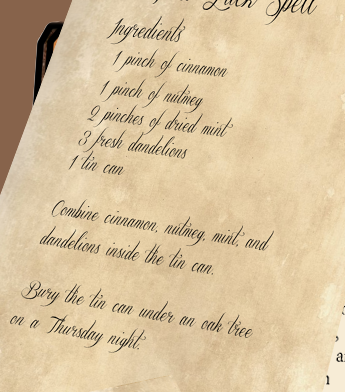 Luck Spell
Ingredients
1 pinch of cinnamon
1 pinch of nutmeg
2 pinches of dried mint
3 fresh dandelions
1 tin can
Combine cinnamon, nutmeg, mint, and
dandelions inside the tin can.
Bury the tin can under an oak tree
on a Thursday night.